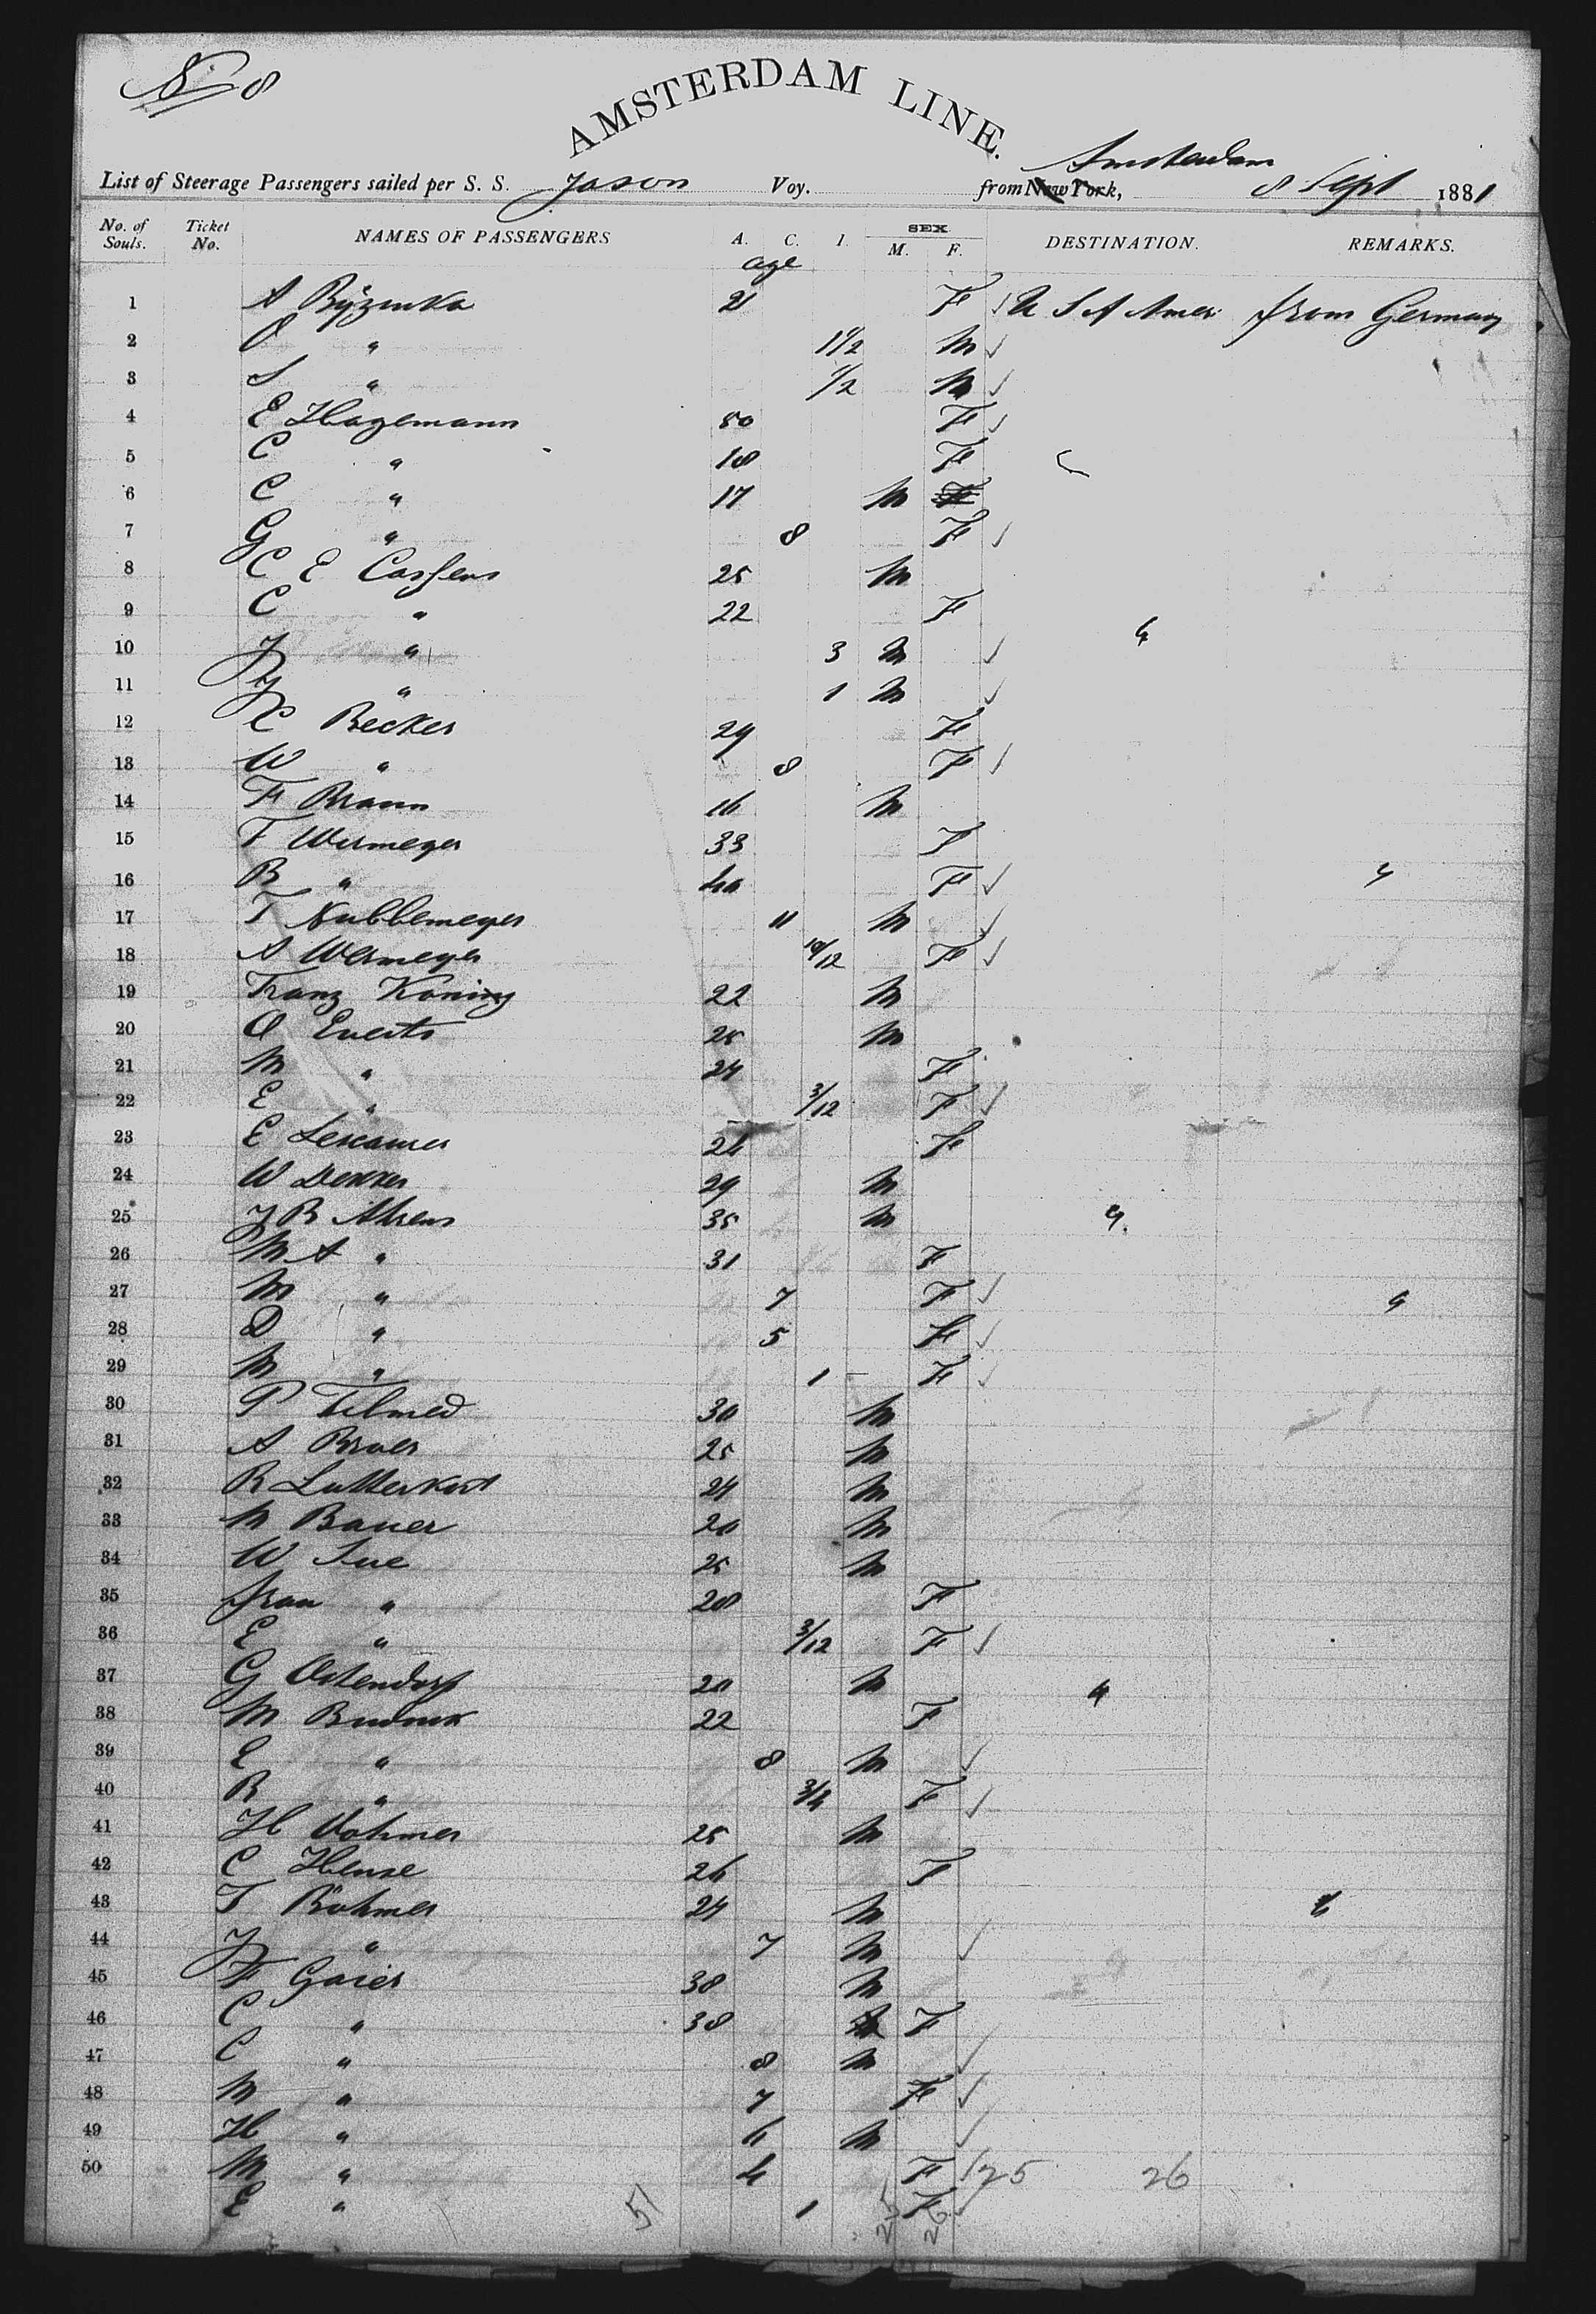 No 8
AMSTERDAM LINE.
Amsterdam
List of Steerage Passengers sailed per S. S. Jason Voy. from New York, 8 Sept 1881
No. of Souls. Ticket No. NAMES OF PASSENGERS A. C. I. SEX M. F. DESTINATION. REMARKS.
age
1 A 21 F ✓ U S A Amer from Germany
2 O " 1 1/2 M ✓
3 S " 1/2 M ✓
4 E Hagemann 50 F ✓
5 C " 18 F
6 C " 17 M F
7 G " 8 F ✓
8 C E Cassens 25 M
9 C " 22 F "
10 J " 3 M ✓
11 J " 1 M ✓
12 C Becker 29 F
13 W " 8 F ✓
14 F Braun 16 M
15 F Wermeyer 33 F
16 B " 40 F ✓ "
17 T Nubbemeyer 11 M ✓
18 A Wermeyer 10/12 F ✓
19 Franz Koning 22 M
20 O Everts 25 M
21 M " 24 F
22 E " 3/12 F ✓
23 E 24 F
24 W Dekker 29 M
25 J B Ahrens 35 M "
26 M A " 31 F
27 M " 7 F ✓ "
28 D " 5 F ✓
29 M " 1 F ✓
30 P 30 M
31 A Broer 25 M
32 R Lutterkort 24 M
33 M Bauer 20 M
34 W Sue 25 M
35 frau " 20 F
36 E " 3/12 F ✓
37 G Ostendorf 20 M "
38 M 22 F
39 E " 8 M ✓
40 B " 3/4 F ✓
41 H Vohmer 25 M
42 C Hense 26 F
43 T Böhmer 24 M "
44 J " 7 M ✓
45 F Gaier 38 M
46 C " 38 F
47 C " 8 M ✓
48 M " 7 F ✓
49 H " 6 M ✓
50 M " 4 F ✓ 25 26
E " 51 1 25 F 26 ✓